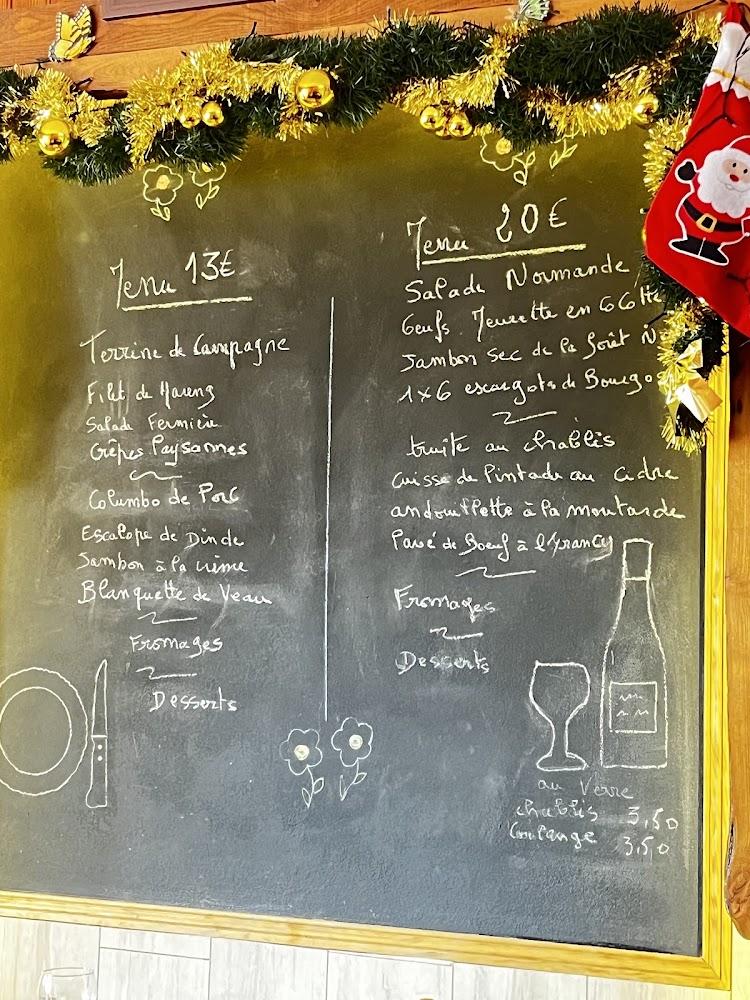 Menu 13€
Terrine de Campagne
Filet de Hareng
Salade Fermière
Crêpes Paysannes
Columbo de Porc
Escalope de Dinde
Jambon à la crème
Blanquette de Veau
Fromages
Desserts
Menu 20€
Salade Normande
Oeufs Meurette en
Jambon Sec de la forêt
1x6 escargots de Bourgo
truite au chablis
Cuisse de Pintade au Cidre
andouillette à la moutarde
Pavé de Boeuf à l'Irancy
Fromages
Desserts
au Verre
chablis 3,50
Coulange 3,50